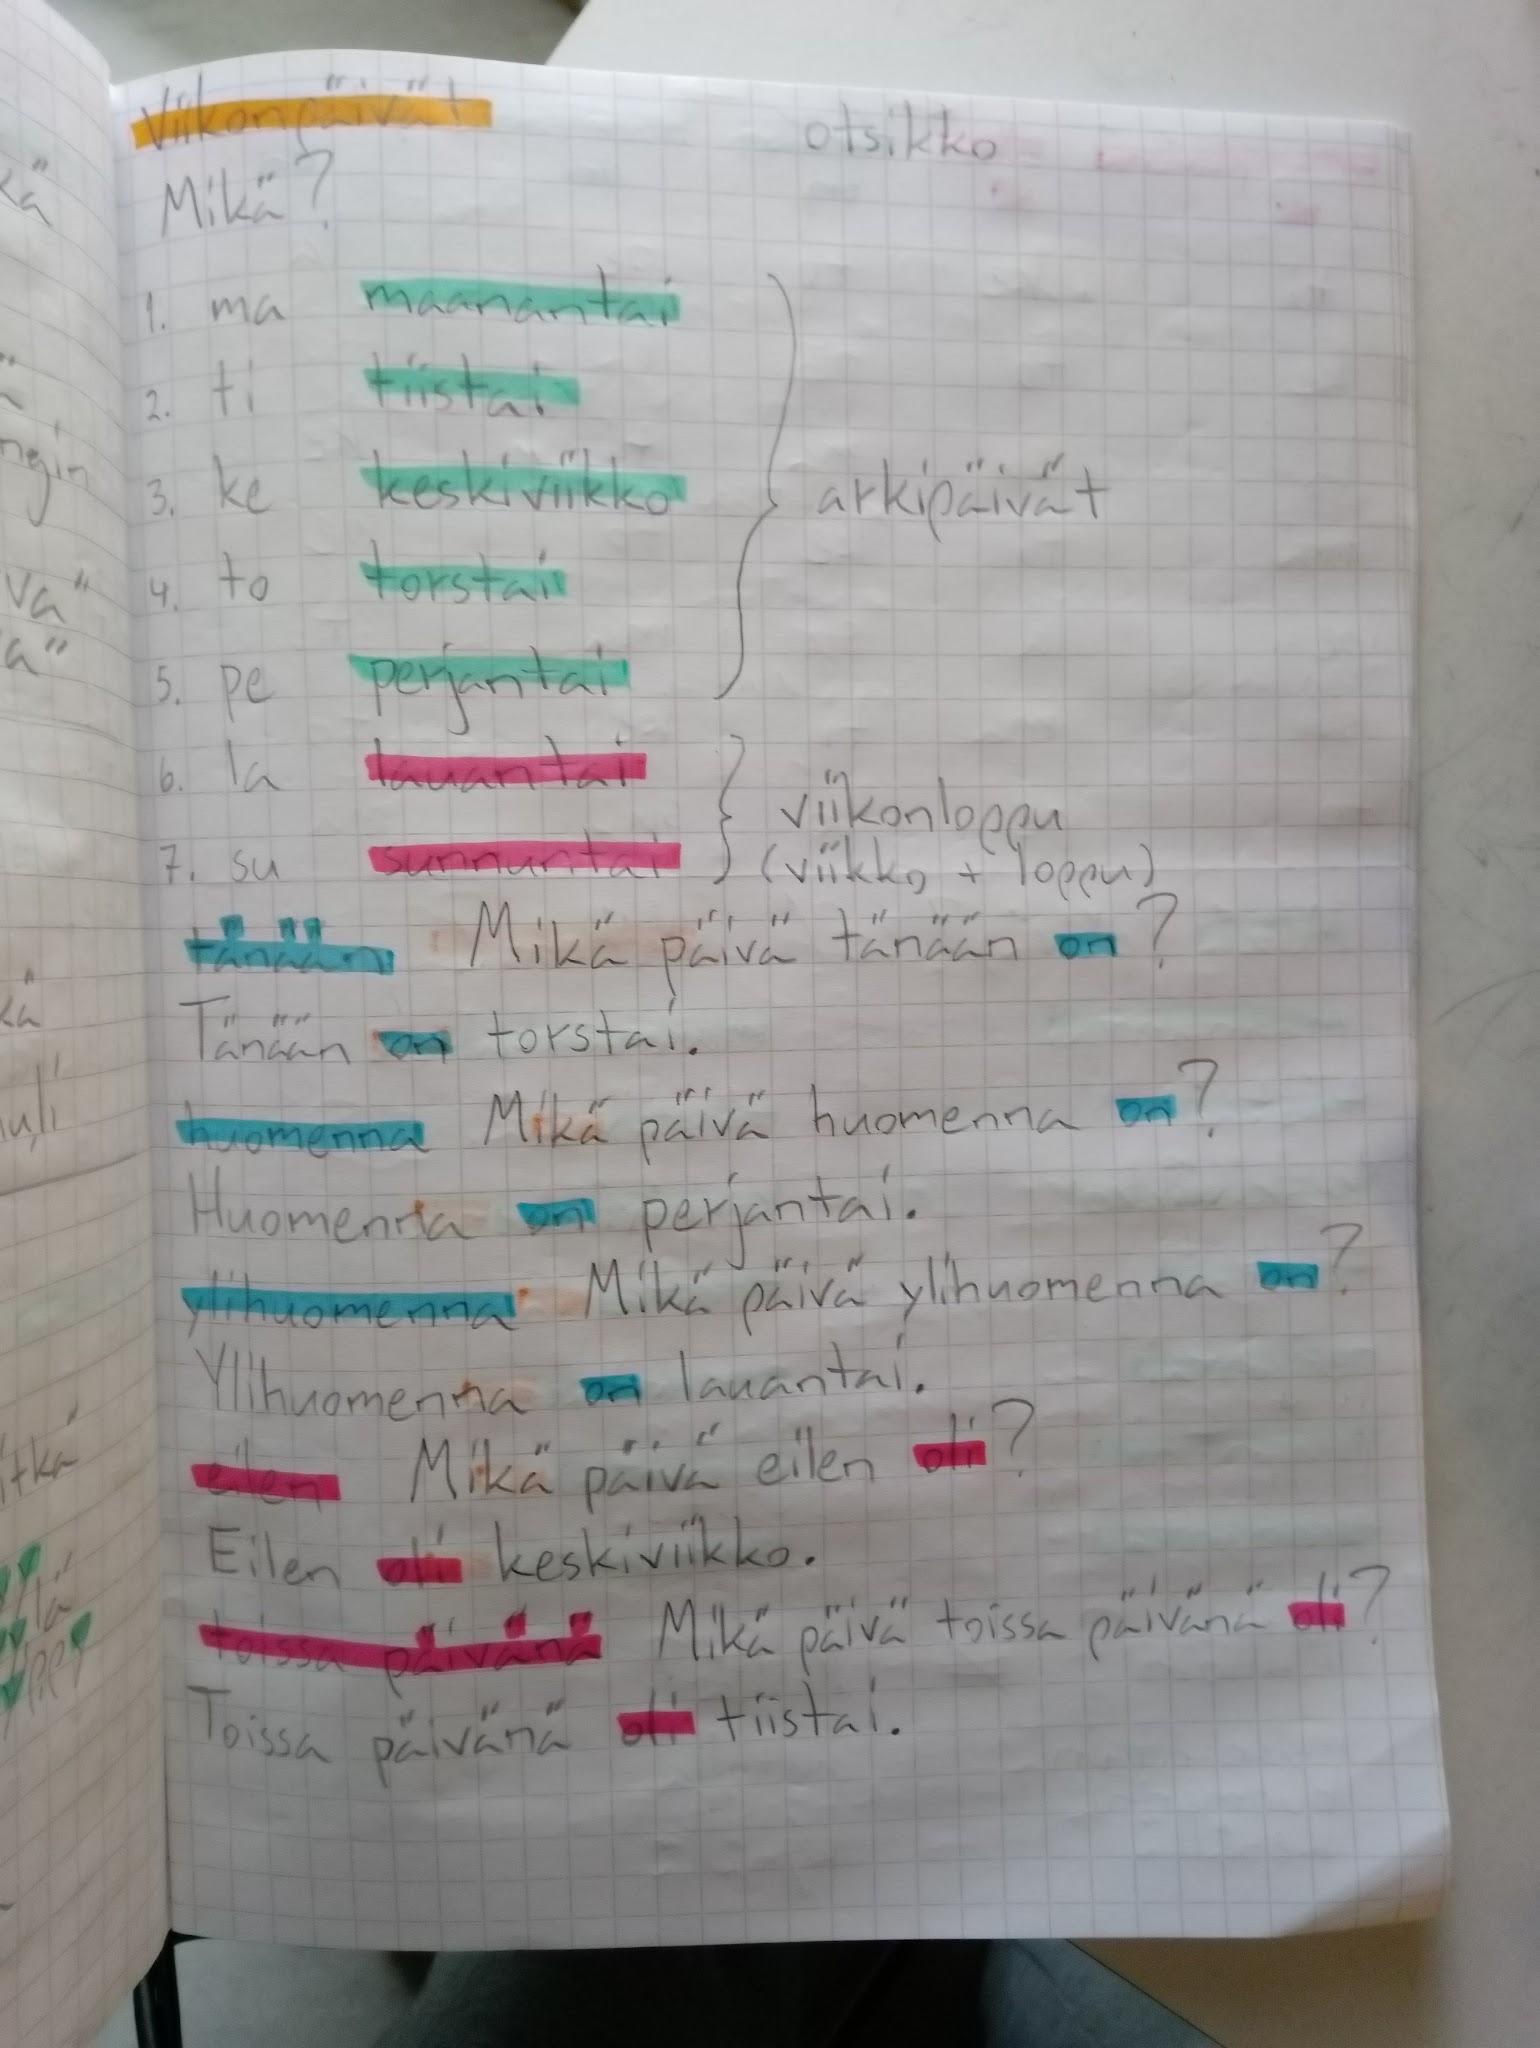 Viikonpäivät otsikko
Mikä?
1. ma maanantai
2. ti tiistai
3. ke keskiviikko arkipäivät
4. to torstai
5. pe perjantai
6. la lauantai
viikonloppu
7. su sunnuntai (viikko + loppu)
tänään Mikä päivä tänään on?
Tänään on torstai.
huomenna Mikä päivä huomenna on?
Huomenna on perjantai.
ylihuomenna Mikä päivä ylihuomenna on?
Ylihuomenna on lauantai.
eilen Mikä päivä eilen oli?
Eilen oli keskiviikko.
toissa päivänä Mikä päivä toissa päivänä oli?
Toissa päivänä oli tiistai.